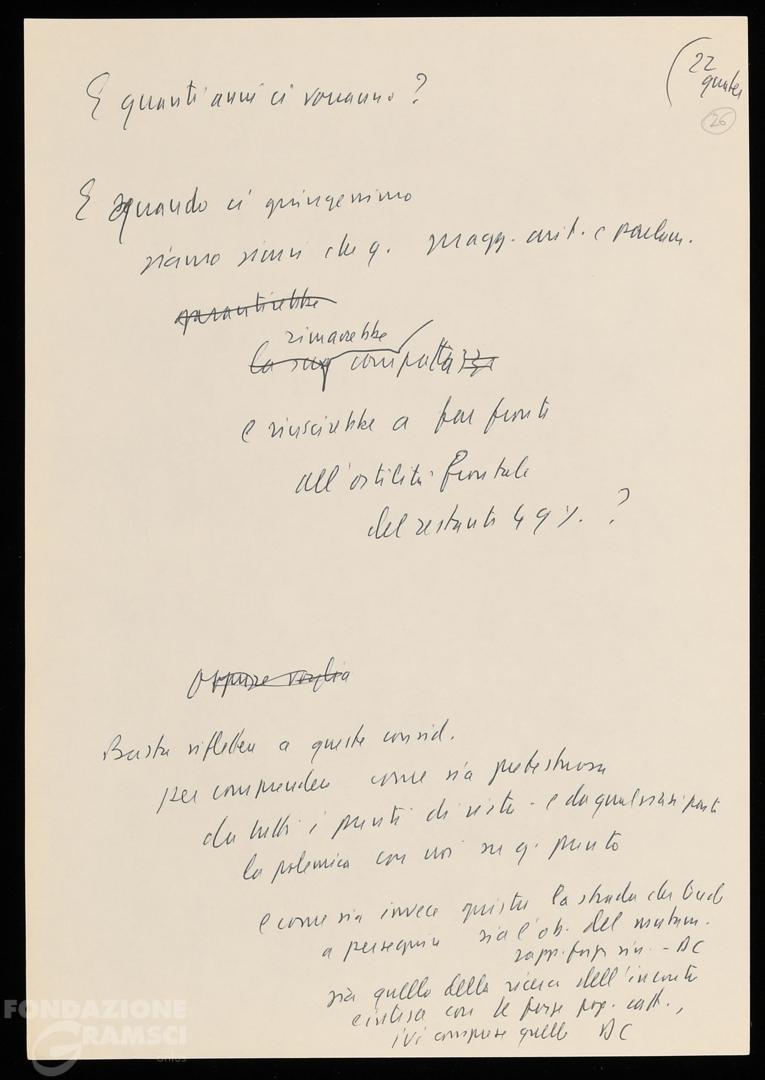 (22
quater
26
E quanti anni ci vorranno?
E quando ci giungessimo
siamo sicuri che q. magg. arit. e parlam.
garantirebbe
rimarrebbe
la sua compattezza
e riuscirebbe a far fronte
all'ostilità frontale
del restante 49%. ?
Oppure voglia
Basta riflettere a queste consid.
per comprendere come sia pretestuosa
da tutti i punti di vista - e da qualsiasi parte
la polemica con noi su q. punto
e come sia invece giusta la strada che tende
a perseguire sia l'ob. del mutam.
rapp. forza sin. - DC
sia quello della ricerca dell'incontro
e intesa con le forze pop. catt.,
ivi comprese quelle DC
FONDAZIONE
GRAMSCI
onlus